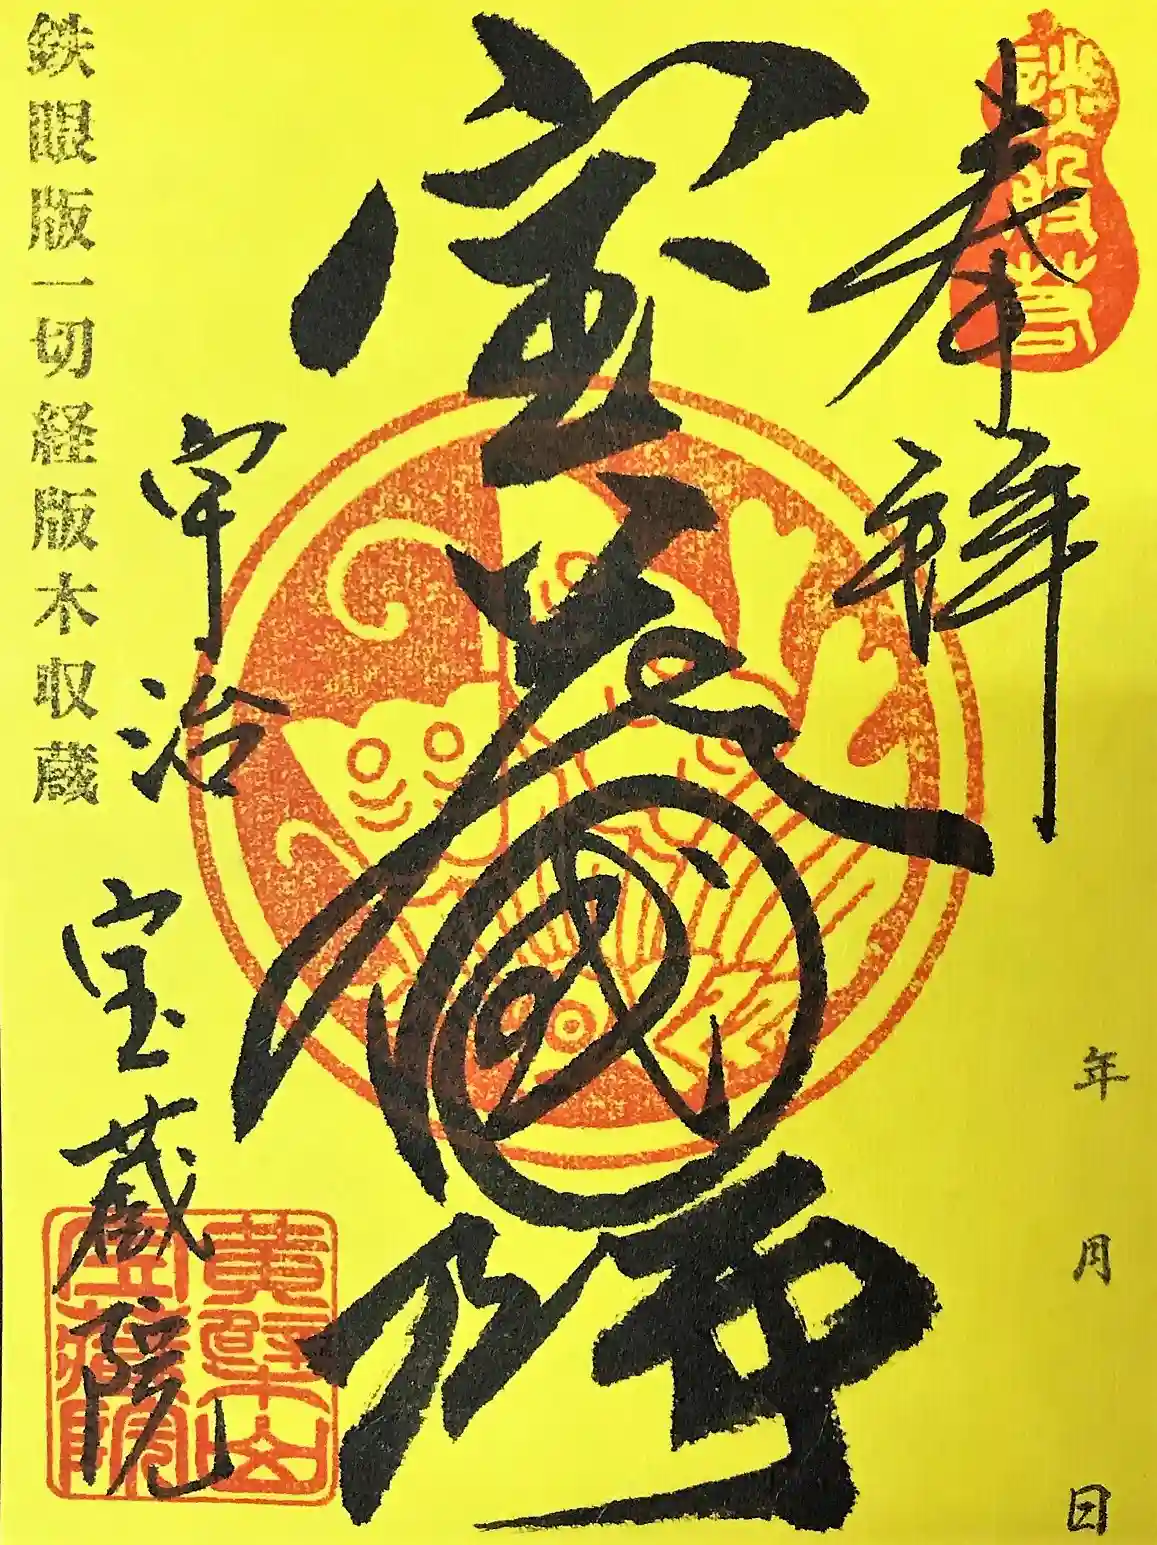 談般若
奉拝
年 月 日
宝蔵國師
宇治 宝蔵院
黄檗山
宝蔵院
鉄眼版一切経版木収蔵